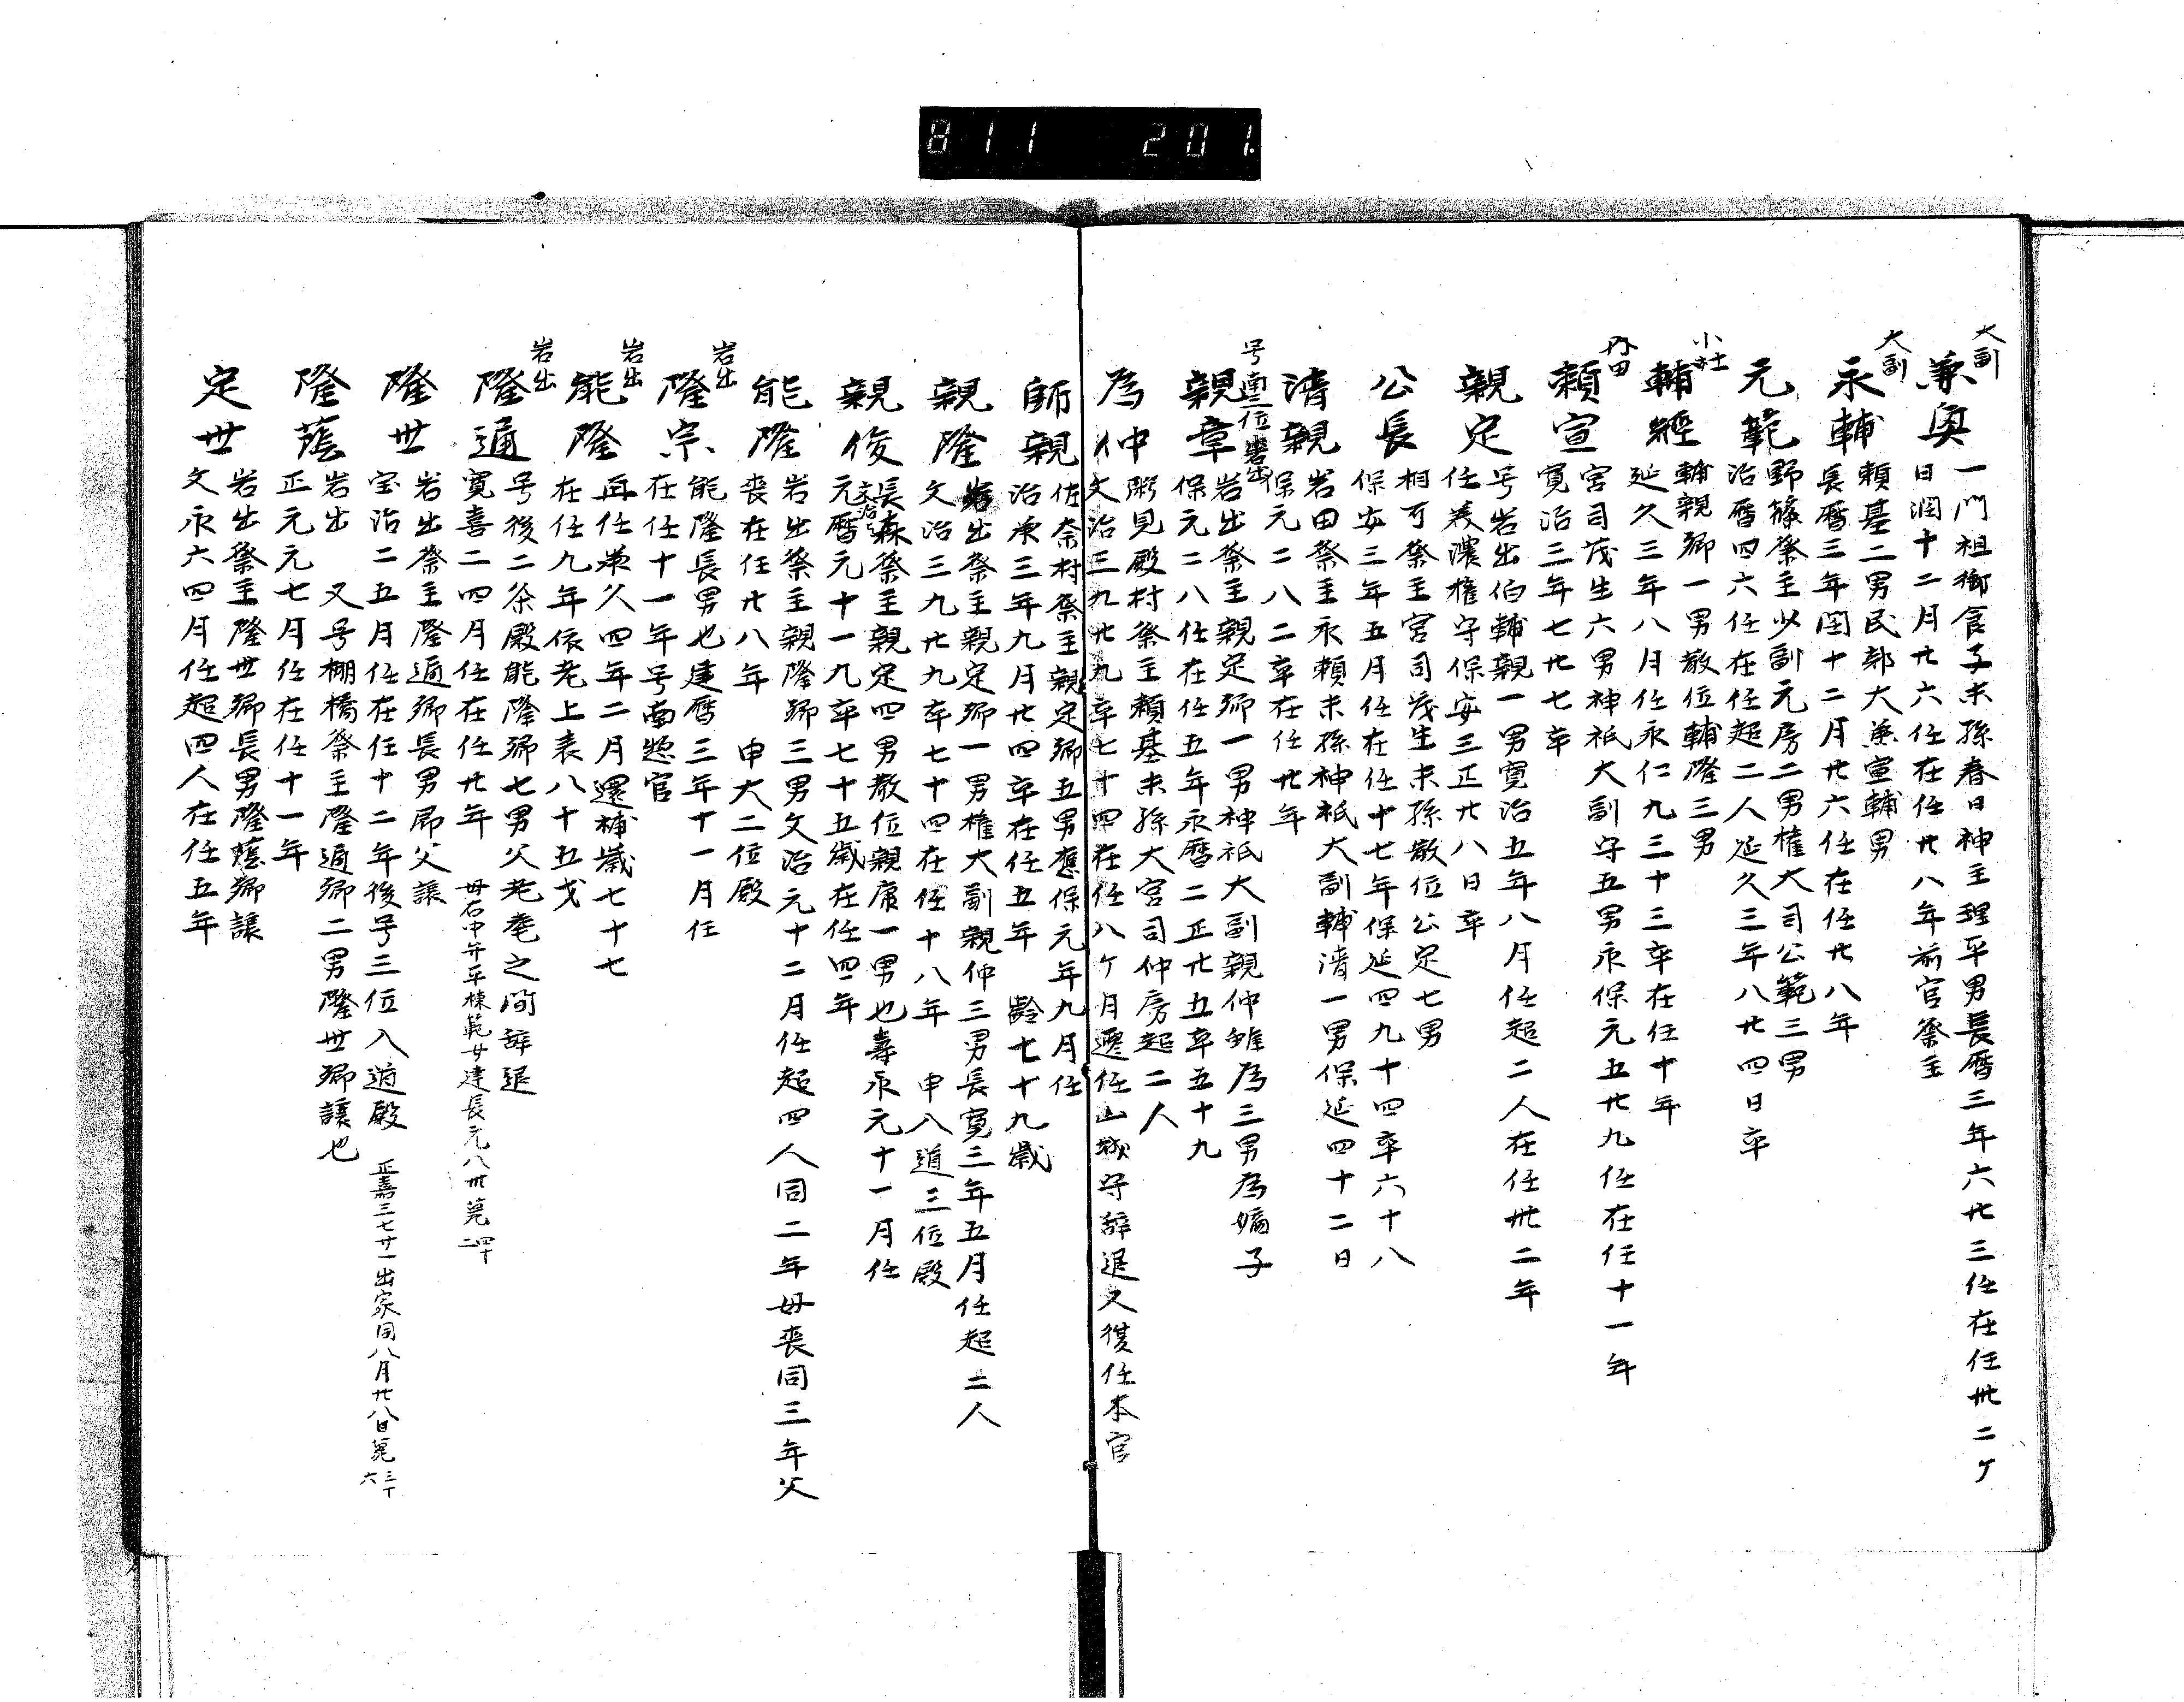 811 201.
大副
兼興
一門祖御食子末孫春日神主理平男長暦三年六廿三任在任卅二ケ
日潤十二月廿六任在任廿八年前官祭主
大副
永輔
頼基二男民部大兼宣輔男
長暦三年閏十二月廿六任在任廿八年
元範
野篠祭主少副元房二男権大司公範三男
治暦四六任在任超二人延久三年八廿四日卒
小社
輔經
輔親卿一男散位輔隆三男
延久三年八月任永仁九三十三卒在任十年
丹田
頼宣
宮司茂生六男神祇大副守五男永保元五廿九任在任十一年
寛治三年七廿七卒
親定
号岩出伯輔親一男寛治五年八月任超二人在任卅二年
任美濃権守保安三正廿八日卒
公長
相可祭主宮司茂生末孫散位公定七男
保安三年五月任在任十七年保延四九十四卒六十八
清親
岩田祭主永頼末孫神祇大副輔清一男保延四十二日
保元二八二卒在任廿年
号南三位岩出
親章
岩出祭主親定卿一男神祇大副親仲雖為三男為嫡子
保元二八任在任五年永暦二正廿五卒五十九
為仲
粥見殿村祭主頼基末孫大宮司仲房超二人
文治三九廿九卒七十四在任八ケ月遷任山城守辞退又復任本官
師親
佐奈村祭主親定卿五男應保元年九月任
治承三年九月廿四卒在任五年 齢七十九歳
親隆
岩出祭主親定卿一男権大副親仲三男長寛三年五月任超二人
文治三九廿九卒七十四在任十八年 申入道三位殿
親俊
長森祭主親定四男散位親康一男也壽永元十一月任
元暦元十一九卒七十五歳在任四年
文治
能隆
岩出祭主親隆卿三男文治元十二月任超四人同二年母喪同三年父
喪在任廿八年 申大二位殿
岩出
隆宗
能隆長男也建暦三年十一月任
在任十一年号南惣官
岩出
能隆
再任承久四年二月還補歳七十七
在任九年依老上表八十五才
岩出
隆通
号後二条殿能隆卿七男父老耄之間辞退
寛喜二四月任在任廿年 母右中弁平棟範女建長元八卅薨四十二
隆世
岩出祭主隆通卿長男帰父譲
宝治二五月任在任十二年後号三位入道殿 正嘉三七廿一出家同八月廿八日薨三十六
隆蔭
岩出 又号棚橋祭主隆通卿二男隆世卿譲也
正元元七月任在任十一年
定世
岩出祭主隆世卿長男隆蔭卿譲
文永六四月任超四人在任五年